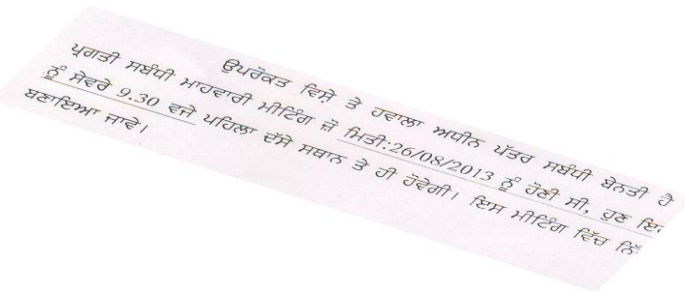 ਉਪਰੋਕਤ ਵਿਸ਼ੇ ਤੇ ਹਵਾਲਾ ਅਧੀਨ ਪੱਤਰ ਸਬੰਧੀ ਬੇਨਤੀ ਹੈ
ਪ੍ਰਗਤੀ ਸਬੰਧੀ ਮਾਹਵਾਰੀ ਮੀਟਿੰਗ ਜੋ ਮਿਤੀ:26/08/2013 ਨੂੰ ਹੋਣੀ ਸੀ, ਹੁਣ
ਨੂੰ ਸੇਵਰੇ 9.30 ਵਜੇ ਪਹਿਲਾ ਦੱਸੇ ਸਥਾਨ ਤੇ ਹੀ ਹੋਵੇਗੀ। ਇਸ ਮੀਟਿੰਗ ਵਿੱਚ
ਬਣਾਇਆ ਜਾਵੇ।